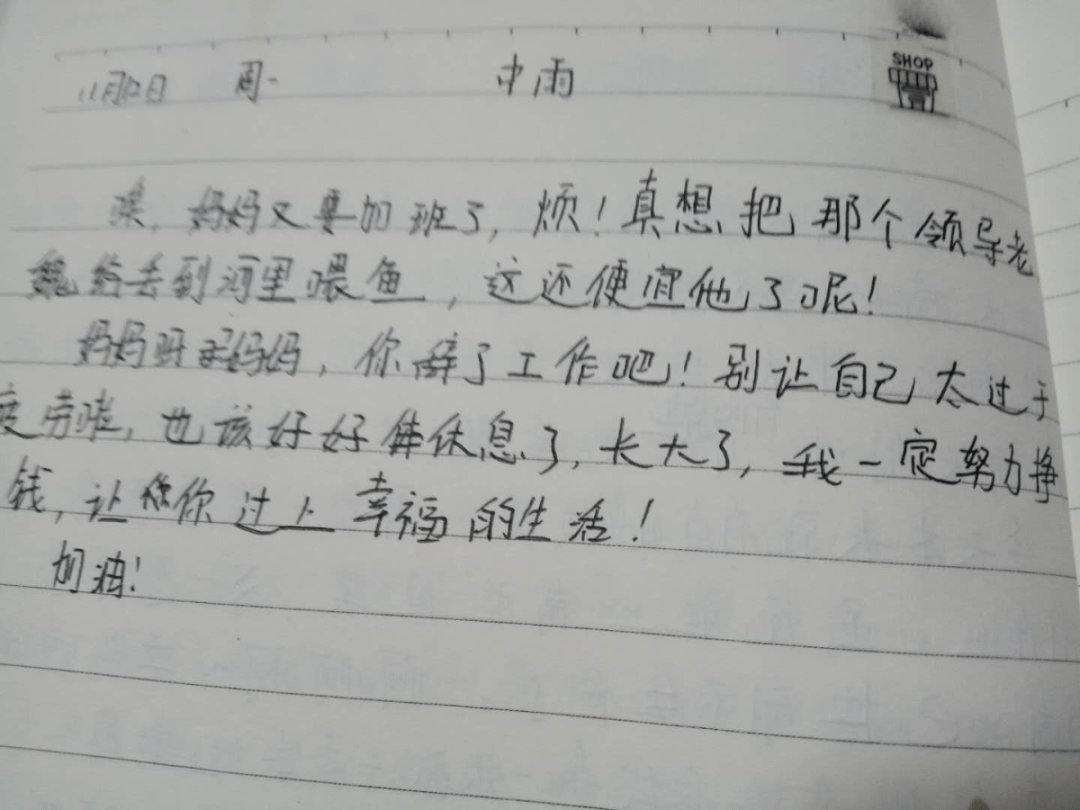 11月12日 周一 中雨
SHOP
唉，妈妈又要加班了，烦！真想把那个领导老
魏给丢到河里喂鱼，这还便宜他了呢！
妈妈呀妈妈，你辞了工作吧！别让自己太过于
疲劳啦，也该好好休息了，长大了，我一定努力挣
钱，让你过上幸福的生活！
加油！